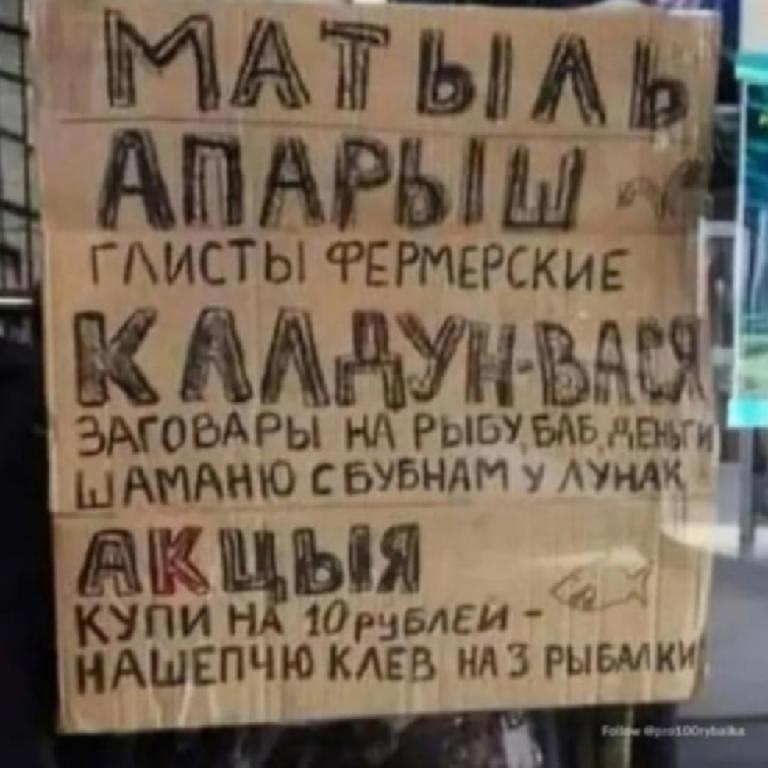 МАТЫЛЬ
АПАРЫШ
ГЛИСТЫ ФЕРМЕРСКИЕ
КАЛДУН-ВАСЯ
ЗАГОВАРЫ НА РЫБУ, БАБ, ДЕНЬГИ
ШАМАНЮ С БУБНАМ У ЛУНАК
АКЦЫЯ
КУПИ НА 10 рублей -
НАШЕПЧЮ КЛЕВ НА 3 РЫБАЛКИ
Follow @pro100rybalka